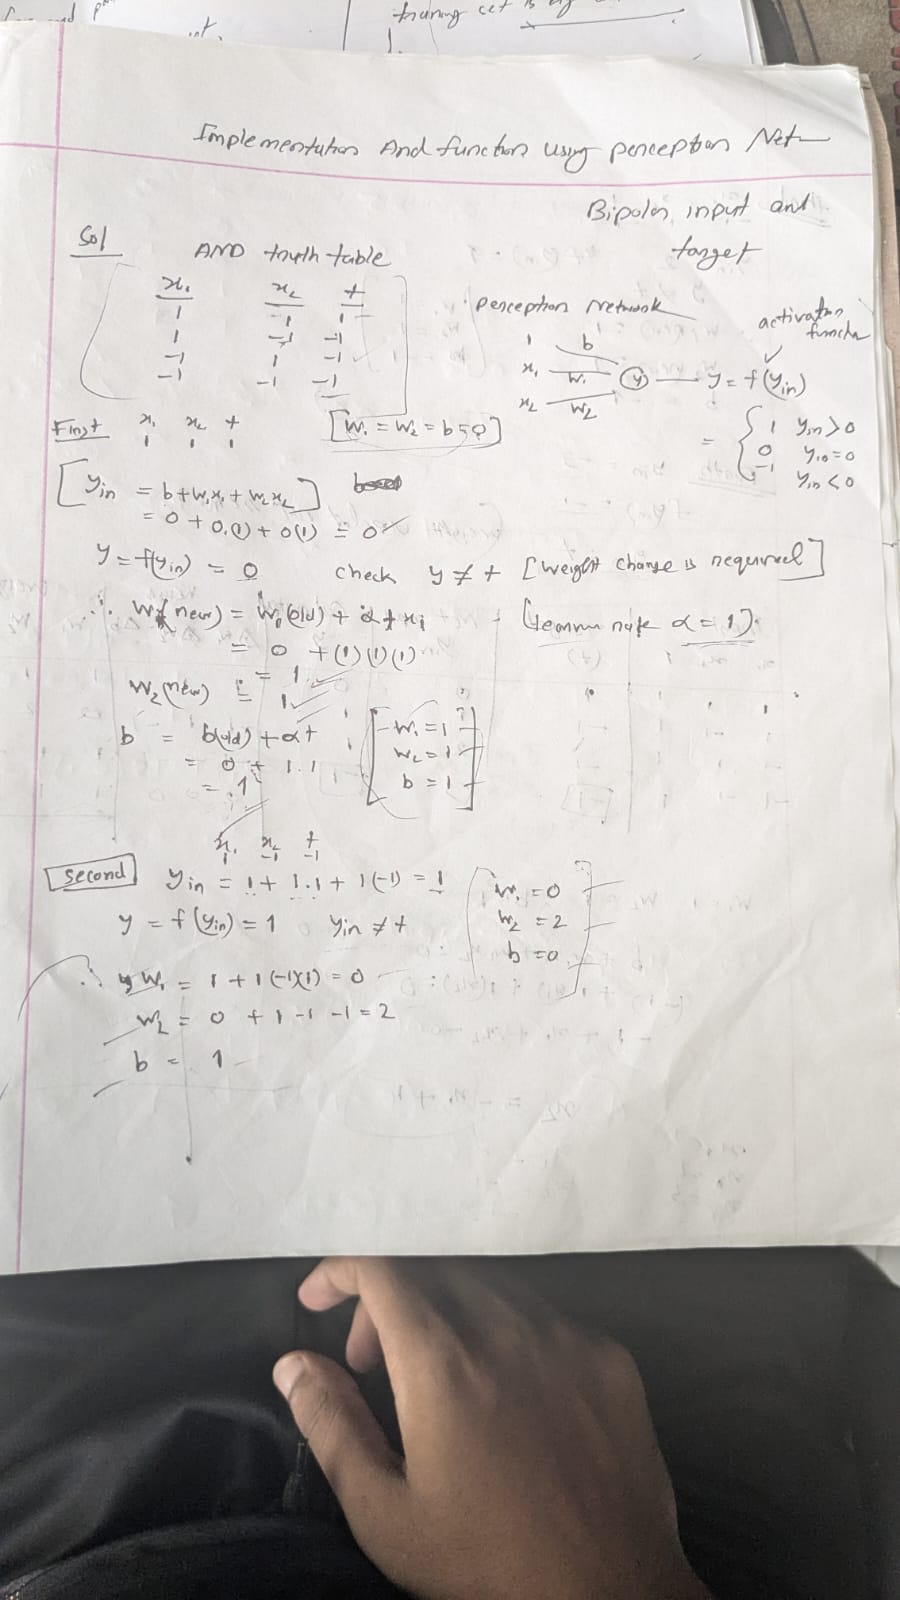 training set is
Implementation And function using perceptron Net
Bipolar input and
target
Sol
AND truth table
x₁ x₂ t
1 1 1
1 -1 -1
-1 1 -1
-1 -1 -1
Perceptron Network
activation
function
1 b
x₁ w₁ y y = f(yin)
x₂ w₂
= { 1 yin > 0
0 yin = 0
-1 yin < 0
First x₁ x₂ t
1 1 1
[w₁ = w₂ = b = 0]
[yin = b + w₁x₁ + w₂x₂]
= 0 + 0.(1) + 0(1) = 0
y = f(yin) = 0 check y ≠ t [weight change is required]
∴ w₁(new) = w₁(old) + α t x₁ (learning rate α = 1).
= 0 + (1)(1)(1)
= 1
w₂(new) = 1
b = b(old) + αt
= 0 + 1.1
= 1
w₁ = 1
w₂ = 1
b = 1
x₁ x₂ t
1 -1 -1
Second yin = 1 + 1.1 + 1(-1) = 1
y = f(yin) = 1 yin ≠ t
w₁ = 0
w₂ = 2
b = 0
∴ w₁ = 1 + 1(-1)(1) = 0
w₂ = 0 + 1 -1 -1 = 2
b = 1